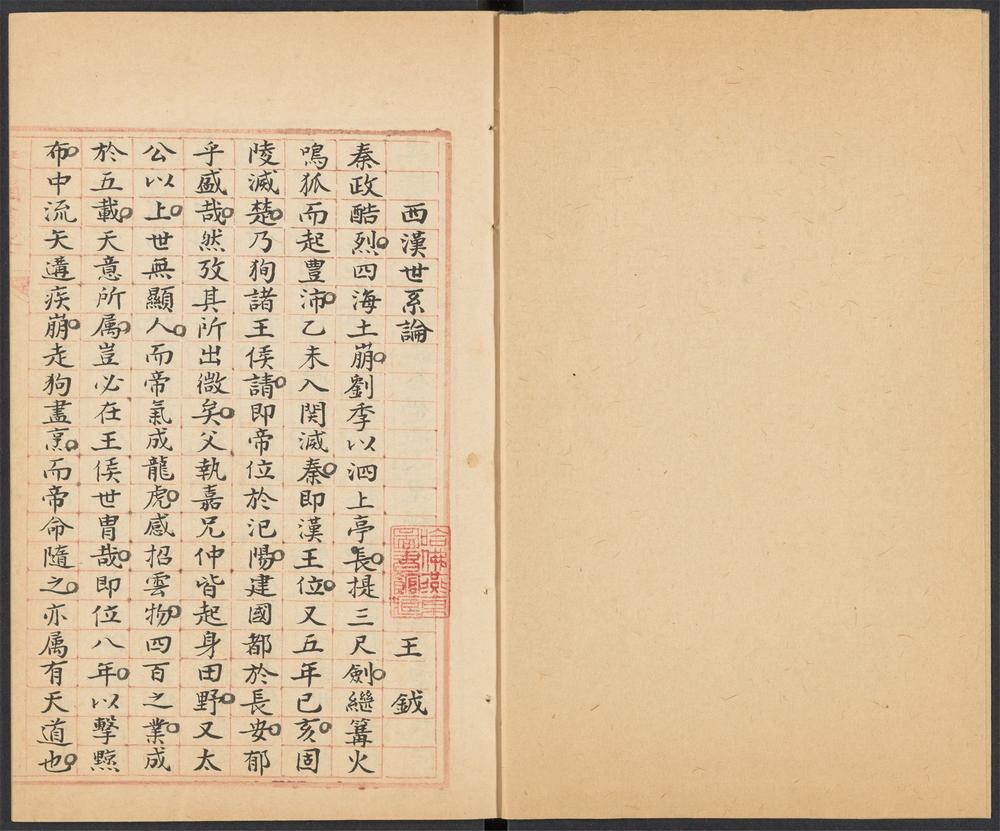 西漢世系論
王鉞
秦政酷烈四海土崩劉季以泗上亭長提三尺劍繼篝火
鳴狐而起豐沛乙未入関滅秦即漢王位又五年已亥固
陵滅楚乃狥諸王侯請即帝位於汜陽建國都於長安郁
乎盛哉然攷其所出微矣父執嘉兄仲皆起身田野又太
公以上世無顯人而帝氣成龍虎感招雲物四百之業成
於五載天意所属豈必在王侯世胄哉即位八年以擊黥
布中流矢遘疾崩走狗盡烹而帝命隨之亦属有天道也